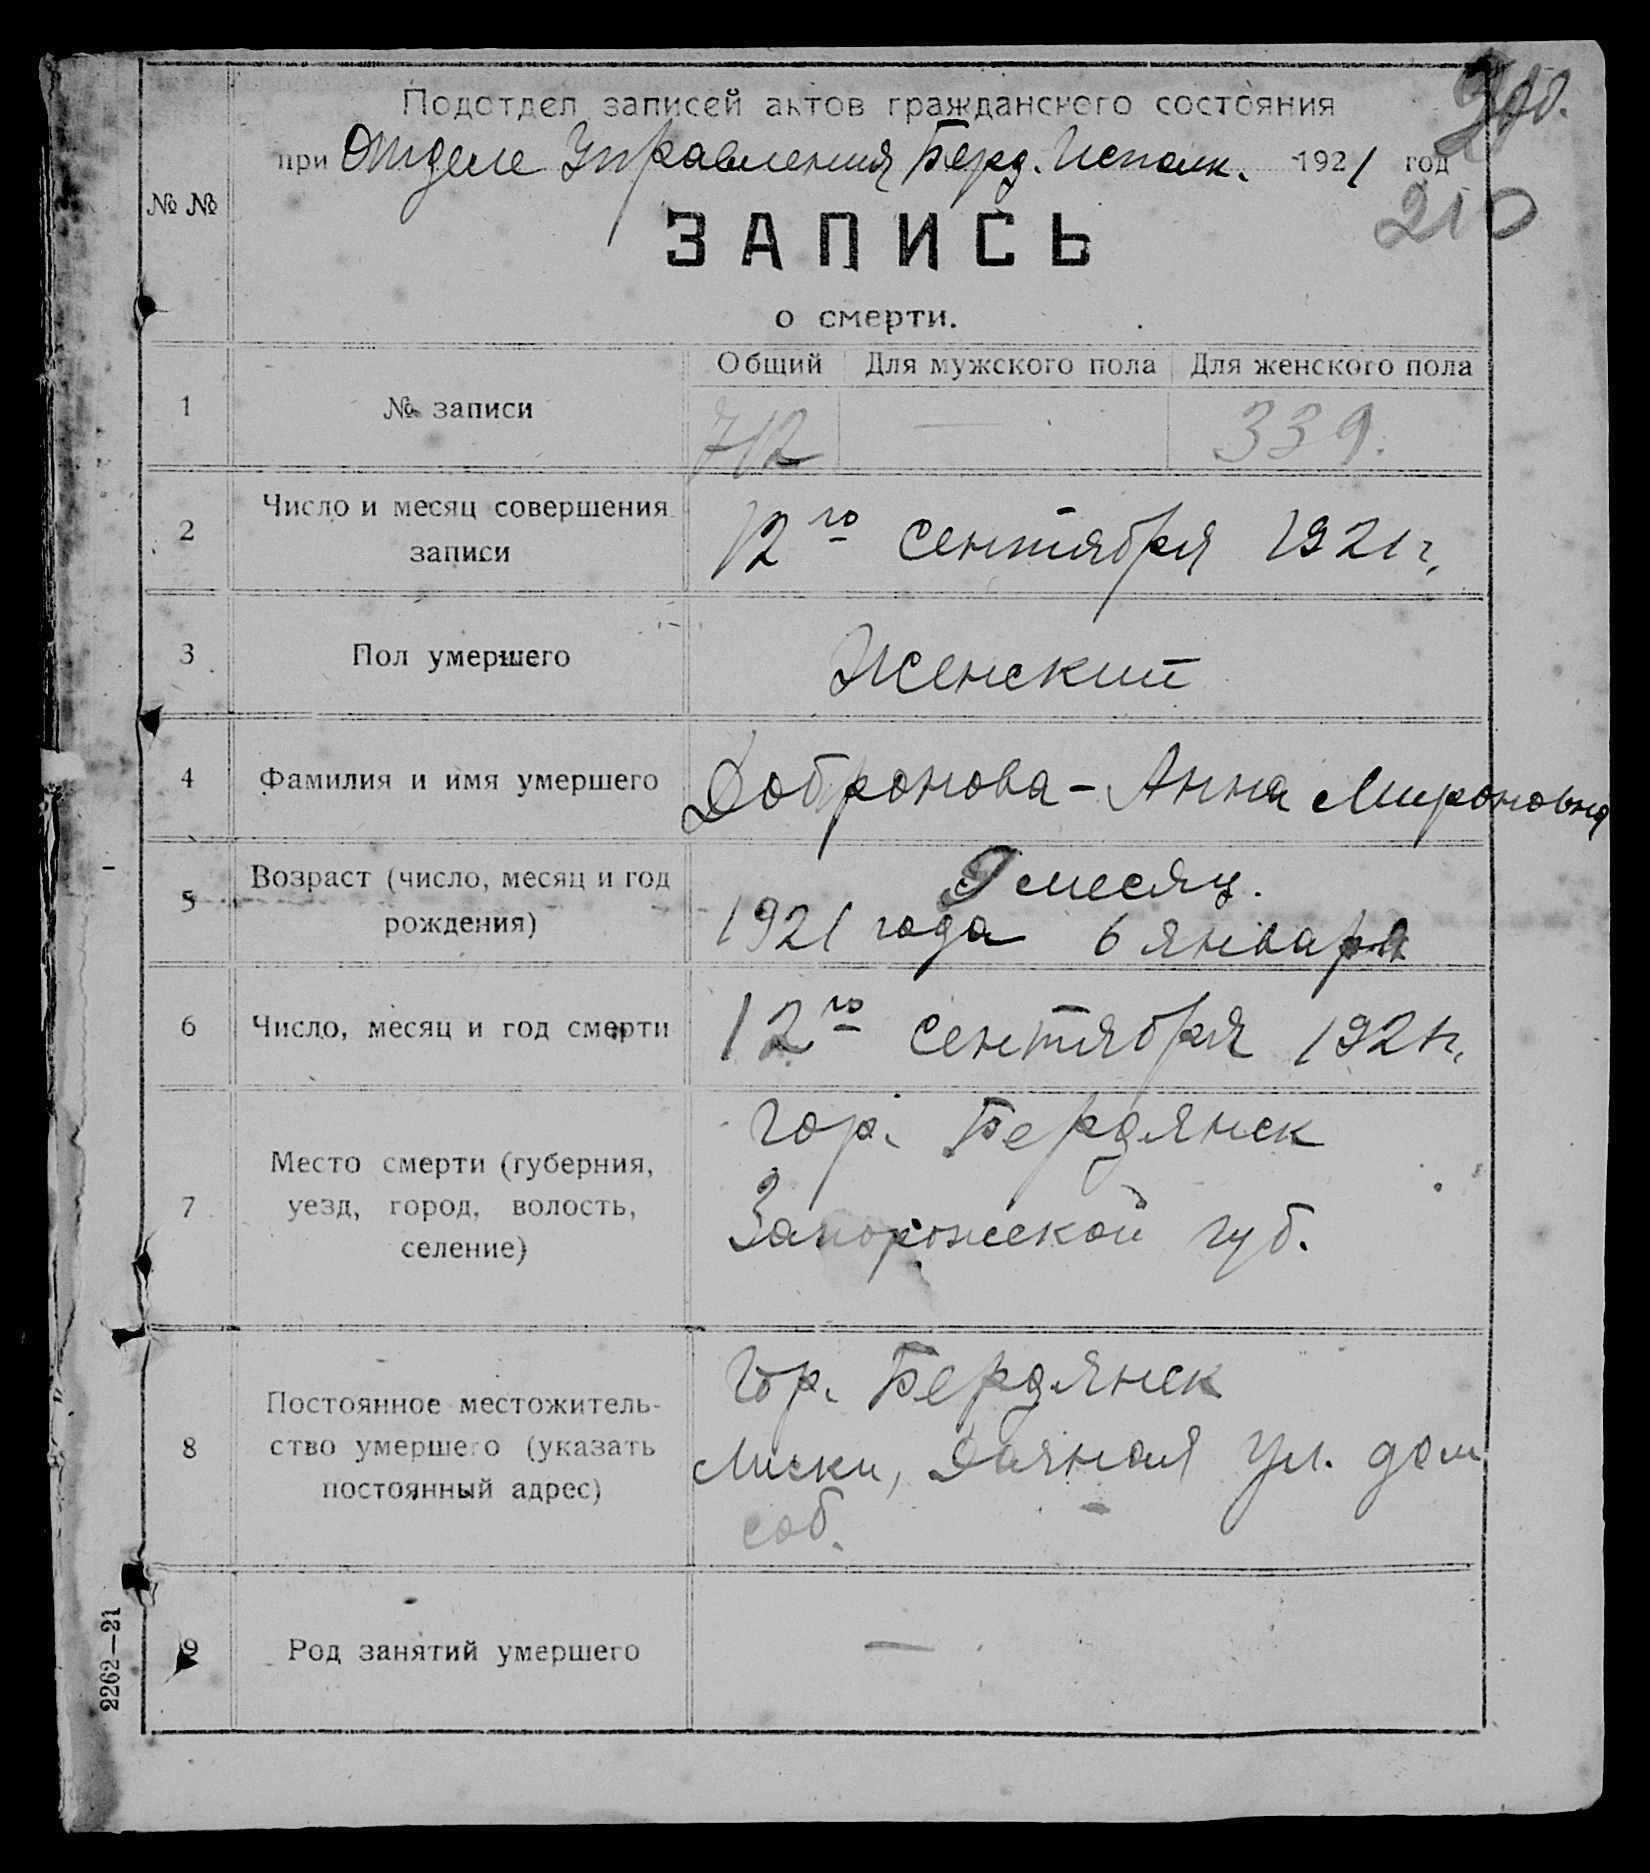 Подотдел записей актов гражданского состояния
при Отделе Управления Берд. Исполк. 1921 год
210
№ №
ЗАПИСЬ
о смерти.
Общий Для мужского пола Для женского пола
1 № записи 712 — 339.
2 Число и месяц совершения записи
12го сентября 1921 г.
3 Пол умершего Женский
4 Фамилия и имя умершего Добронова - Анна Мироновна
5 Возраст (число, месяц и год рождения)
9 месяц.
1921 года 6 января
6 Число, месяц и год смерти 12го сентября 1921 г.
7 Место смерти (губерния, уезд, город, волость, селение)
Гор. Бердянск
Запорожской губ.
8 Постоянное местожитель-
ство умершего (указать
постоянный адрес)
Гор. Бердянск
Лиски, ул. дом
соб.
9 Род занятий умершего —
2262—21